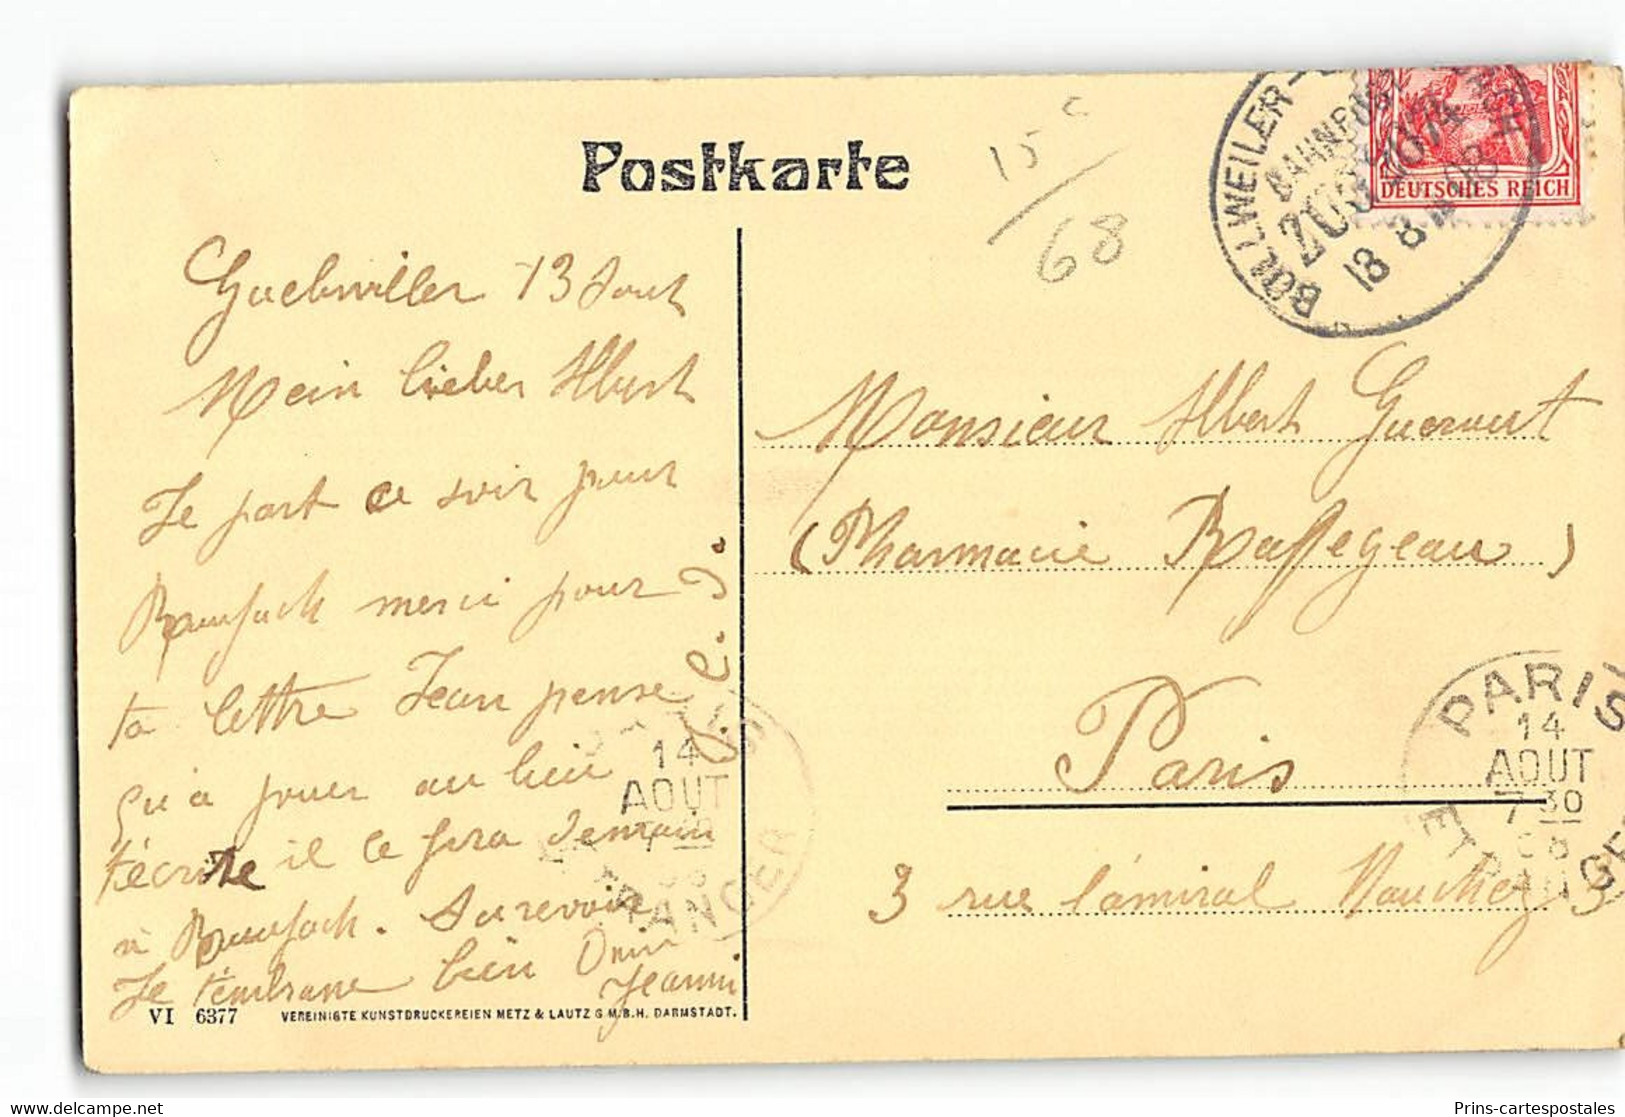 Postkarte
15 c
68
BOLLWEILER-
BAHNPOST
ZUG
18 8 08
DEUTSCHES REICH
Guebwiller 13 Aout
Mein lieber Albert
Je part ce soir pour
merci pour
ta lettre Jean pense
qu'a jouer au lieu
t'écrire il le fera demain
à . Aurevoir
Je t'embrasse bien
Monsieur Albert
(Pharmacie Raffegeau)
Paris
3 rue l'amiral Mouchez
PARIS
14
AOUT
7 30
08
ETRANGER
14
AOUT
ETRANGER
VI 6377 VEREINIGTE KUNSTDRUCKEREIEN METZ & LAUTZ G.M.B.H. DARMSTADT.
Prins-cartespostales
www.delcampe.net